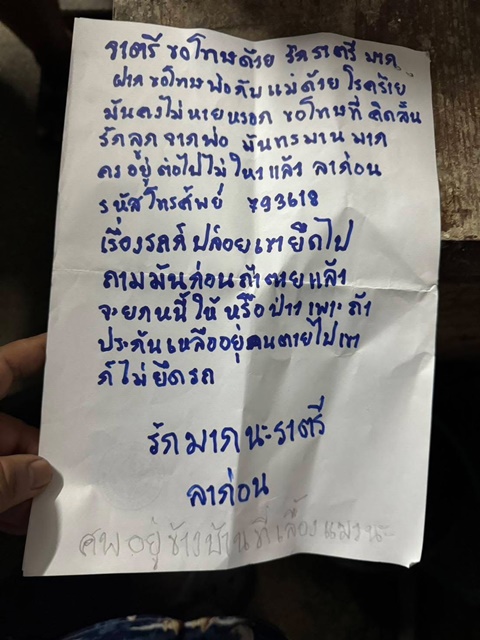 ราตรี ขอโทษด้วย รักราตรี มาก
ฝากขอโทษพ่อกับแม่ด้วย โรคร้าย
มันคงไม่หายหรอก ขอโทษที่คิดสั้น
รักลูกจากพ่อ มันทรมานมาก
คงอยู่ต่อไปไม่ไหวแล้ว ลาก่อน
รหัสโทรศัพย์ 793618
เรื่องรถก็ปล่อยเขายึดไป
ถามมันก่อนถ้าตายแล้ว
จะยกหนี้ให้หรือป่าว เพาะถ้า
ประกันเหลืออยู่คนตายไปเขา
ก็ไม่ยึดรถ
รักมากนะราตรี
ลาก่อน
ศพอยู่ข้างบ้านที่เลื้องนะ